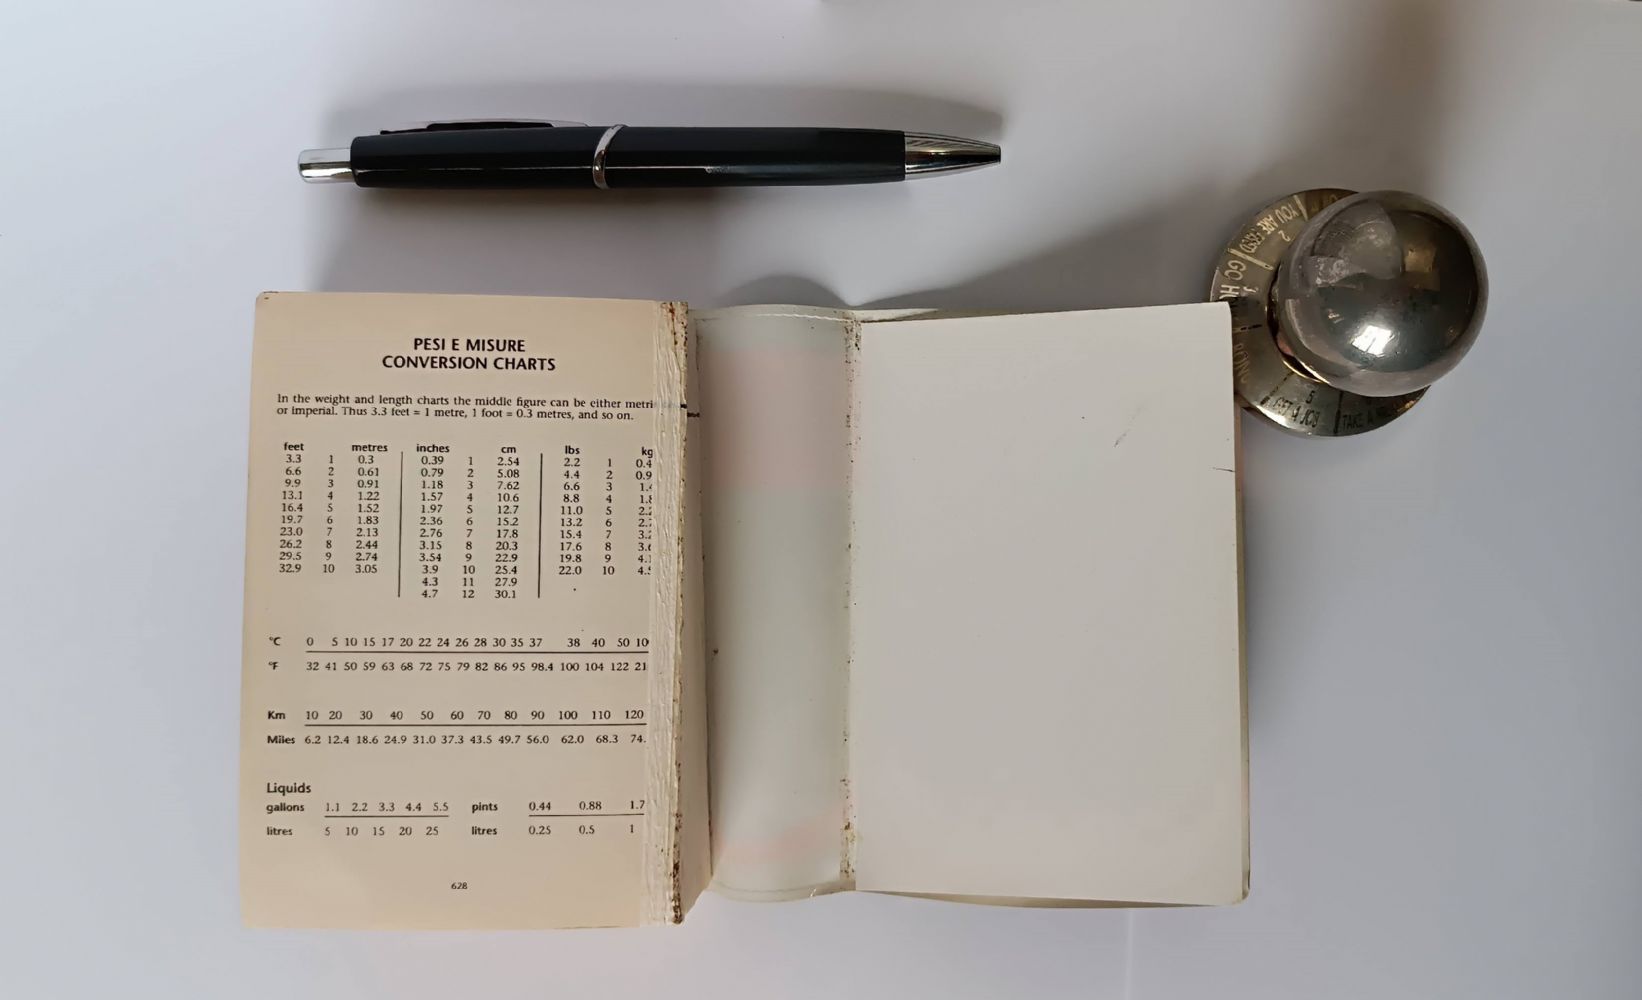 PESI E MISURE
CONVERSION CHARTS
In the weight and length charts the middle figure can be either metri
or imperial. Thus 3.3 feet = 1 metre, 1 foot = 0.3 metres, and so on.
feet metres inches cm lbs kg
3.3 1 0.3 0.39 1 2.54 2.2 1 0.4
6.6 2 0.61 0.79 2 5.08 4.4 2 0.9
9.9 3 0.91 1.18 3 7.62 6.6 3 1.
13.1 4 1.22 1.57 4 10.6 8.8 4 1.8
16.4 5 1.52 1.97 5 12.7 11.0 5 2.2
19.7 6 1.83 2.36 6 15.2 13.2 6 2.
23.0 7 2.13 2.76 7 17.8 15.4 7 3.
26.2 8 2.44 3.15 8 20.3 17.6 8 3.
29.5 9 2.74 3.54 9 22.9 19.8 9 4.
32.9 10 3.05 3.9 10 25.4 22.0 10 4.
4.3 11 27.9
4.7 12 30.1
°C 0 5 10 15 17 20 22 24 26 28 30 35 37 38 40 50 10
°F 32 41 50 59 63 68 72 75 79 82 86 95 98.4 100 104 122 21
Km 10 20 30 40 50 60 70 80 90 100 110 120
Miles 6.2 12.4 18.6 24.9 31.0 37.3 43.5 49.7 56.0 62.0 68.3 74.
Liquids
gallons 1.1 2.2 3.3 4.4 5.5 pints 0.44 0.88 1.7
litres 5 10 15 20 25 litres 0.25 0.5 1
628
YOU ARE
2
GO
3
5
GET A JOB
TAKE A